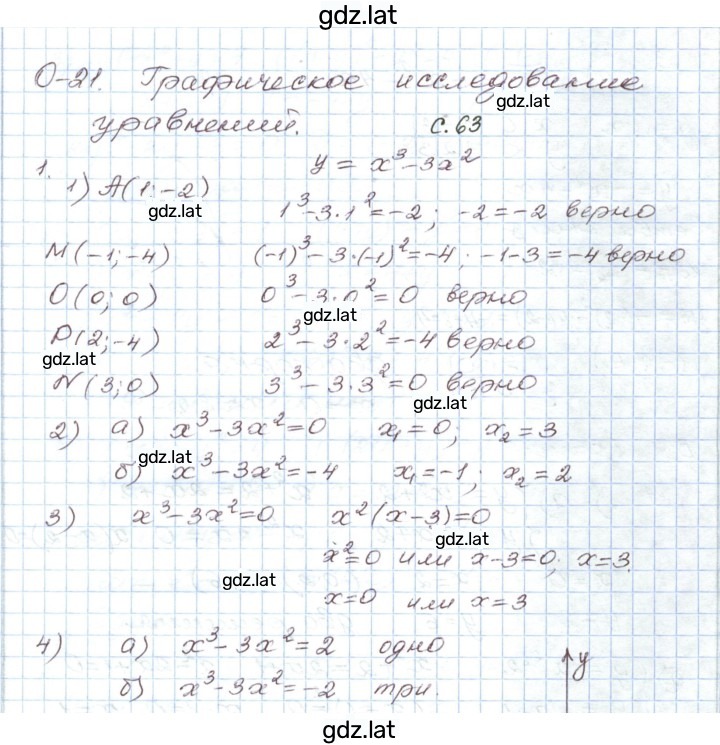 gdz.lat
О-21. Графическое исследование
gdz.lat
уравнений. с. 63
1. y = x³-3x²
1) A(1; -2) 1³-3·1²=-2; -2=-2 верно
gdz.lat
M(-1; -4) (-1)³-3·(-1)²=-4; -1-3=-4 верно
O(0; 0) 0³-3·0²=0 верно
gdz.lat
P(2; -4) 2³-3·2²=-4 верно
gdz.lat
N(3; 0) 3³-3·3²=0 верно
gdz.lat
2) а) x³-3x²=0 x₁=0; x₂=3
gdz.lat
б) x³-3x²=-4 x₁=-1; x₂=2
3) x³-3x²=0 x²(x-3)=0
gdz.lat
x²=0 или x-3=0; x=3.
gdz.lat
x=0 или x=3
4) а) x³-3x²=2 одно
y
б) x³-3x²=-2 три.
gdz.lat